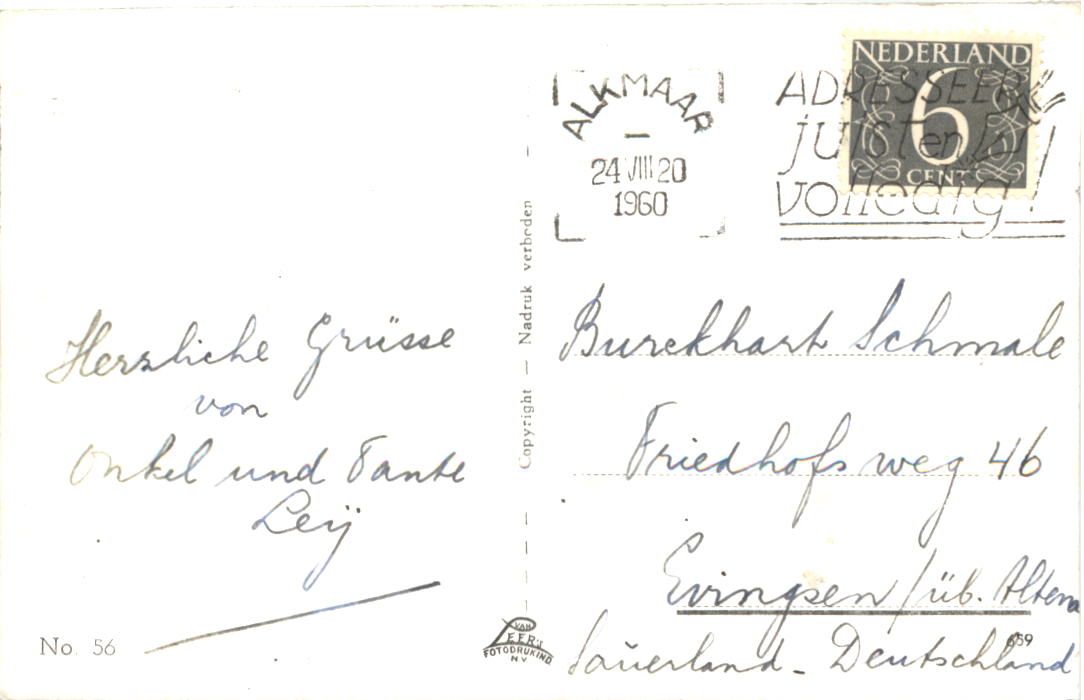 NEDERLAND
6
CENT
ALKMAAR
24 VIII 20
1960
ADRESSEER
juist en
volledig!
Herzliche Grüsse
von
Onkel und Tante
Leij
Copyright — Nadruk verboden
Burckhart Schmale
Friedhofsweg 46
Evingsen / üb. Altena
Sauerland - Deutschland
No. 56
VAN
LEER's
FOTODRUKIND
N.V.
659